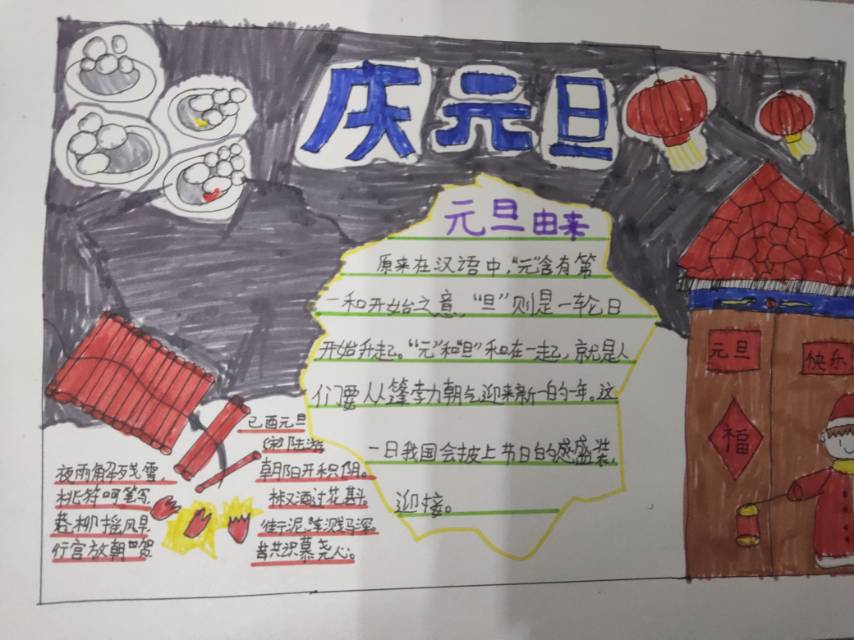 庆元旦
元旦由来
原来在汉语中,“元”含有第
一和开始之意,“旦”则是一轮日
开始升起。“元”和“旦”和在一起,就是人
们要以蓬勃朝气迎来新的一年。这
一日我国会披上节日的盛装,
迎接。
元旦
快乐
福
己酉元旦
陆游
夜雨解残雪,
朝阳开积阴。
桃符呵笔写,
椒酒过花斟。
巷柳摇风早,
街泥溅马深。
行宫放朝贺,
共识慕尧心。